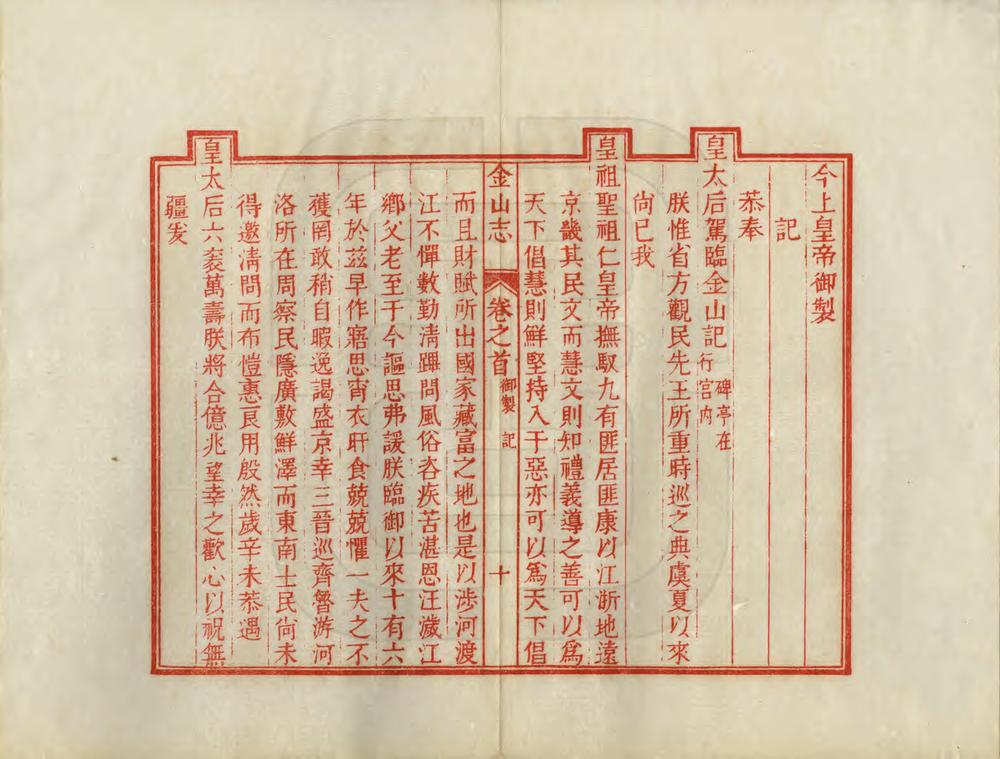 今上皇帝御製
記
恭奉
皇太后駕臨金山記碑亭在行宮內
朕惟省方觀民先王所重時巡之典虞夏以來
尚已我
皇祖聖祖仁皇帝撫馭九有匪居匪康以江浙地遠
京畿其民文而慧文則知禮義導之善可以為
天下倡慧則鮮堅持入于惡亦可以為天下倡
金山志 卷之首 御製 記 十
而且財賦所出國家藏富之地也是以涉河渡
江不憚數勤清蹕問風俗咨疾苦湛恩汪濊江
鄉父老至于今謳思弗諼朕臨御以來十有六
年於茲早作寤思宵衣旰食兢兢懼一夫之不
獲罔敢稍自暇逸謁盛京幸三晉巡齊魯游河
洛所在周察民隱廣敷鮮澤而東南士民尚未
得邀清問而布愷惠良用殷然歲辛未恭遇
皇太后六袠萬壽朕將合億兆望幸之歡心以祝無
疆爰